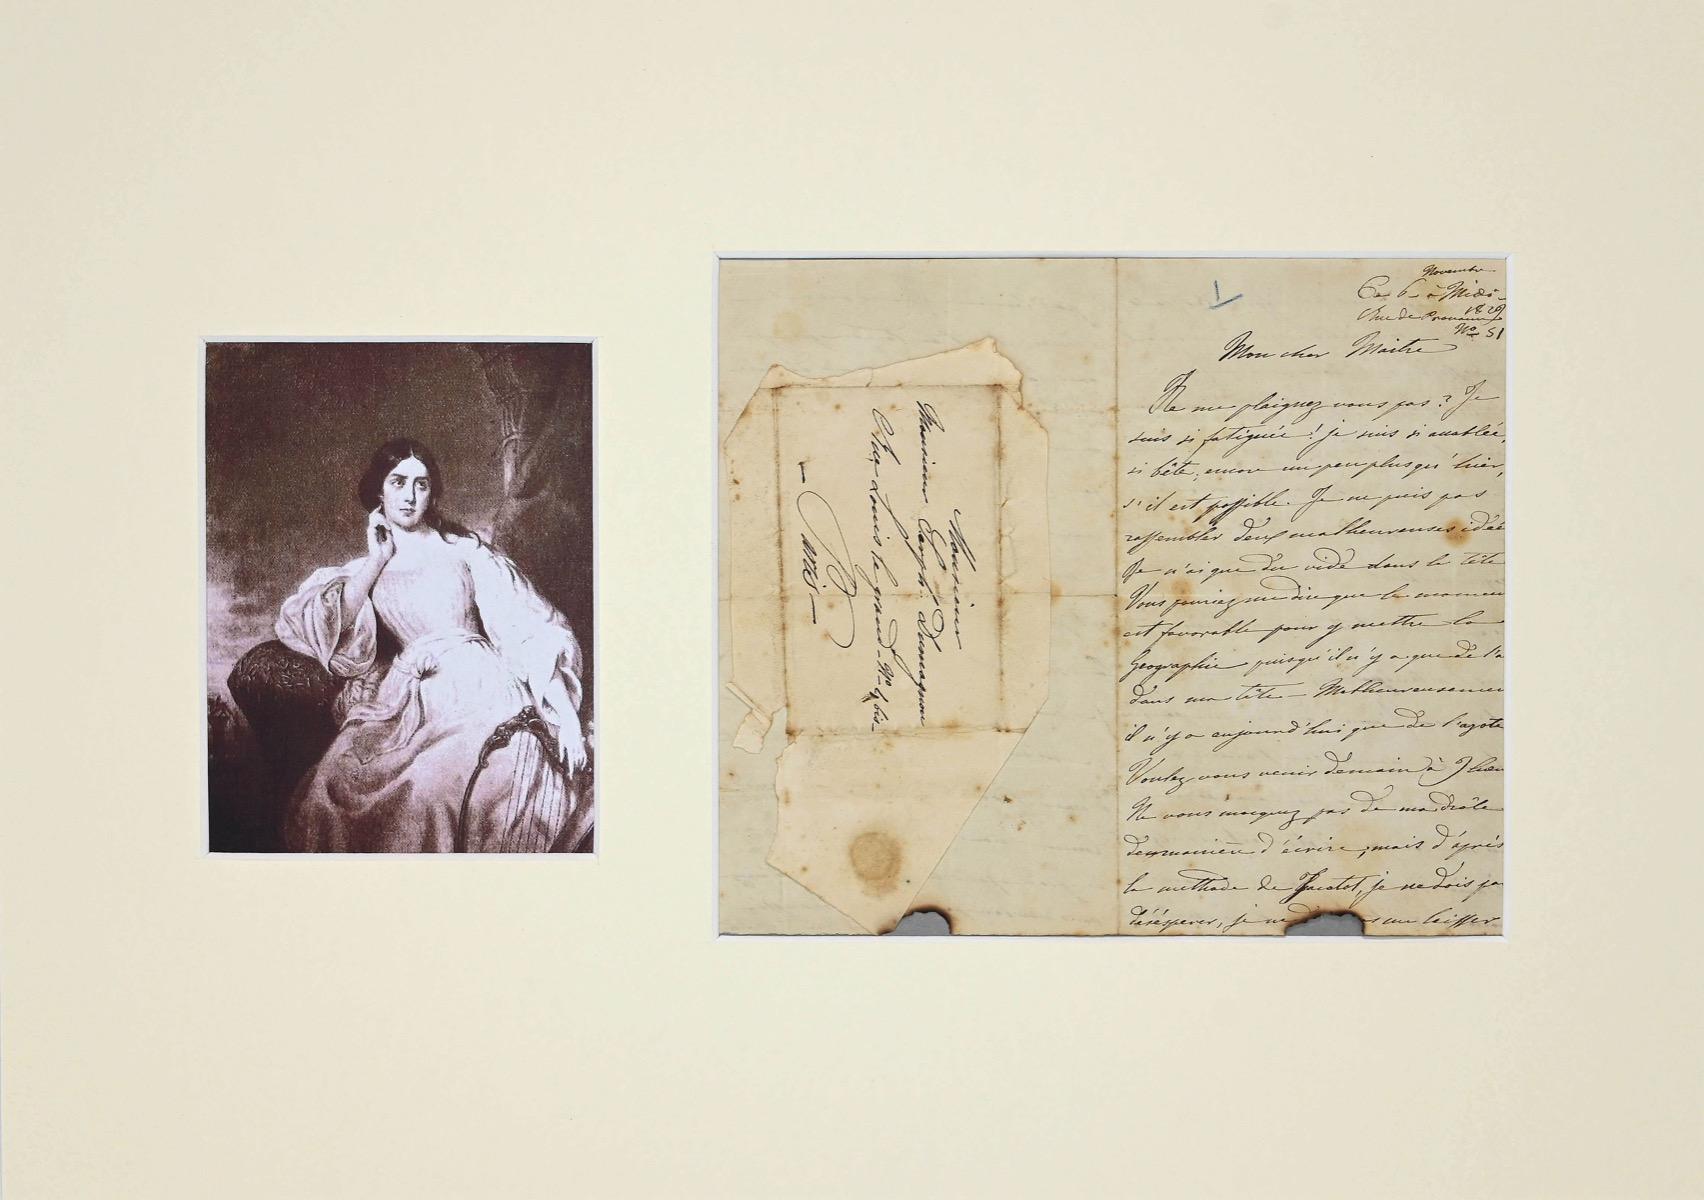 Monsieur
Monsieur Joseph Dumagnou
Rue Louis le grand - No 9 bis -
- Paris -
Novembre
Ce 6 - à Midi -
1829
Rue de Provence
No 51
Mon cher Maitre
Ne me plaignez vous pas? Je
suis si fatiguée! je suis si accablée,
si bête, encore un peu plus qu'hier,
s'il est possible. Je ne puis pas
rassembler deux malheureuses idée
Je n'ai que du vide dans la tête
Vous pourriez me dire que le momen
est favorable pour y mettre la
Geographie puisqu'il n'y a que de l'a
dans ma tête - Malheureusemen
il n'y a aujourd'hui que de l'azote
Voulez vous venir demain à 7 heu
Ne vous moquez pas de ma drôle
de manière d'écrire, mais d'après
la methode de Jacotot, je ne dois pa
désésperer, je ne me laisser